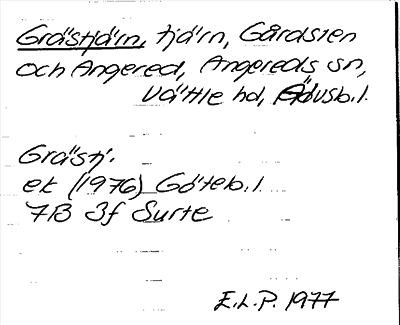 Grästjärn, tjärn, Gårdsten
och Angered, Angereds sn,
Vättle hd, Älvsb.l.
Grästj.
ek (1976) Göteb.l.
7B 3f Surte
E.L.P. 1977